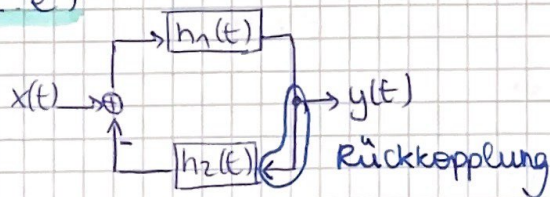 h₁(t)
x(t) ⊕ y(t)
-
h₂(t) Rückkopplung